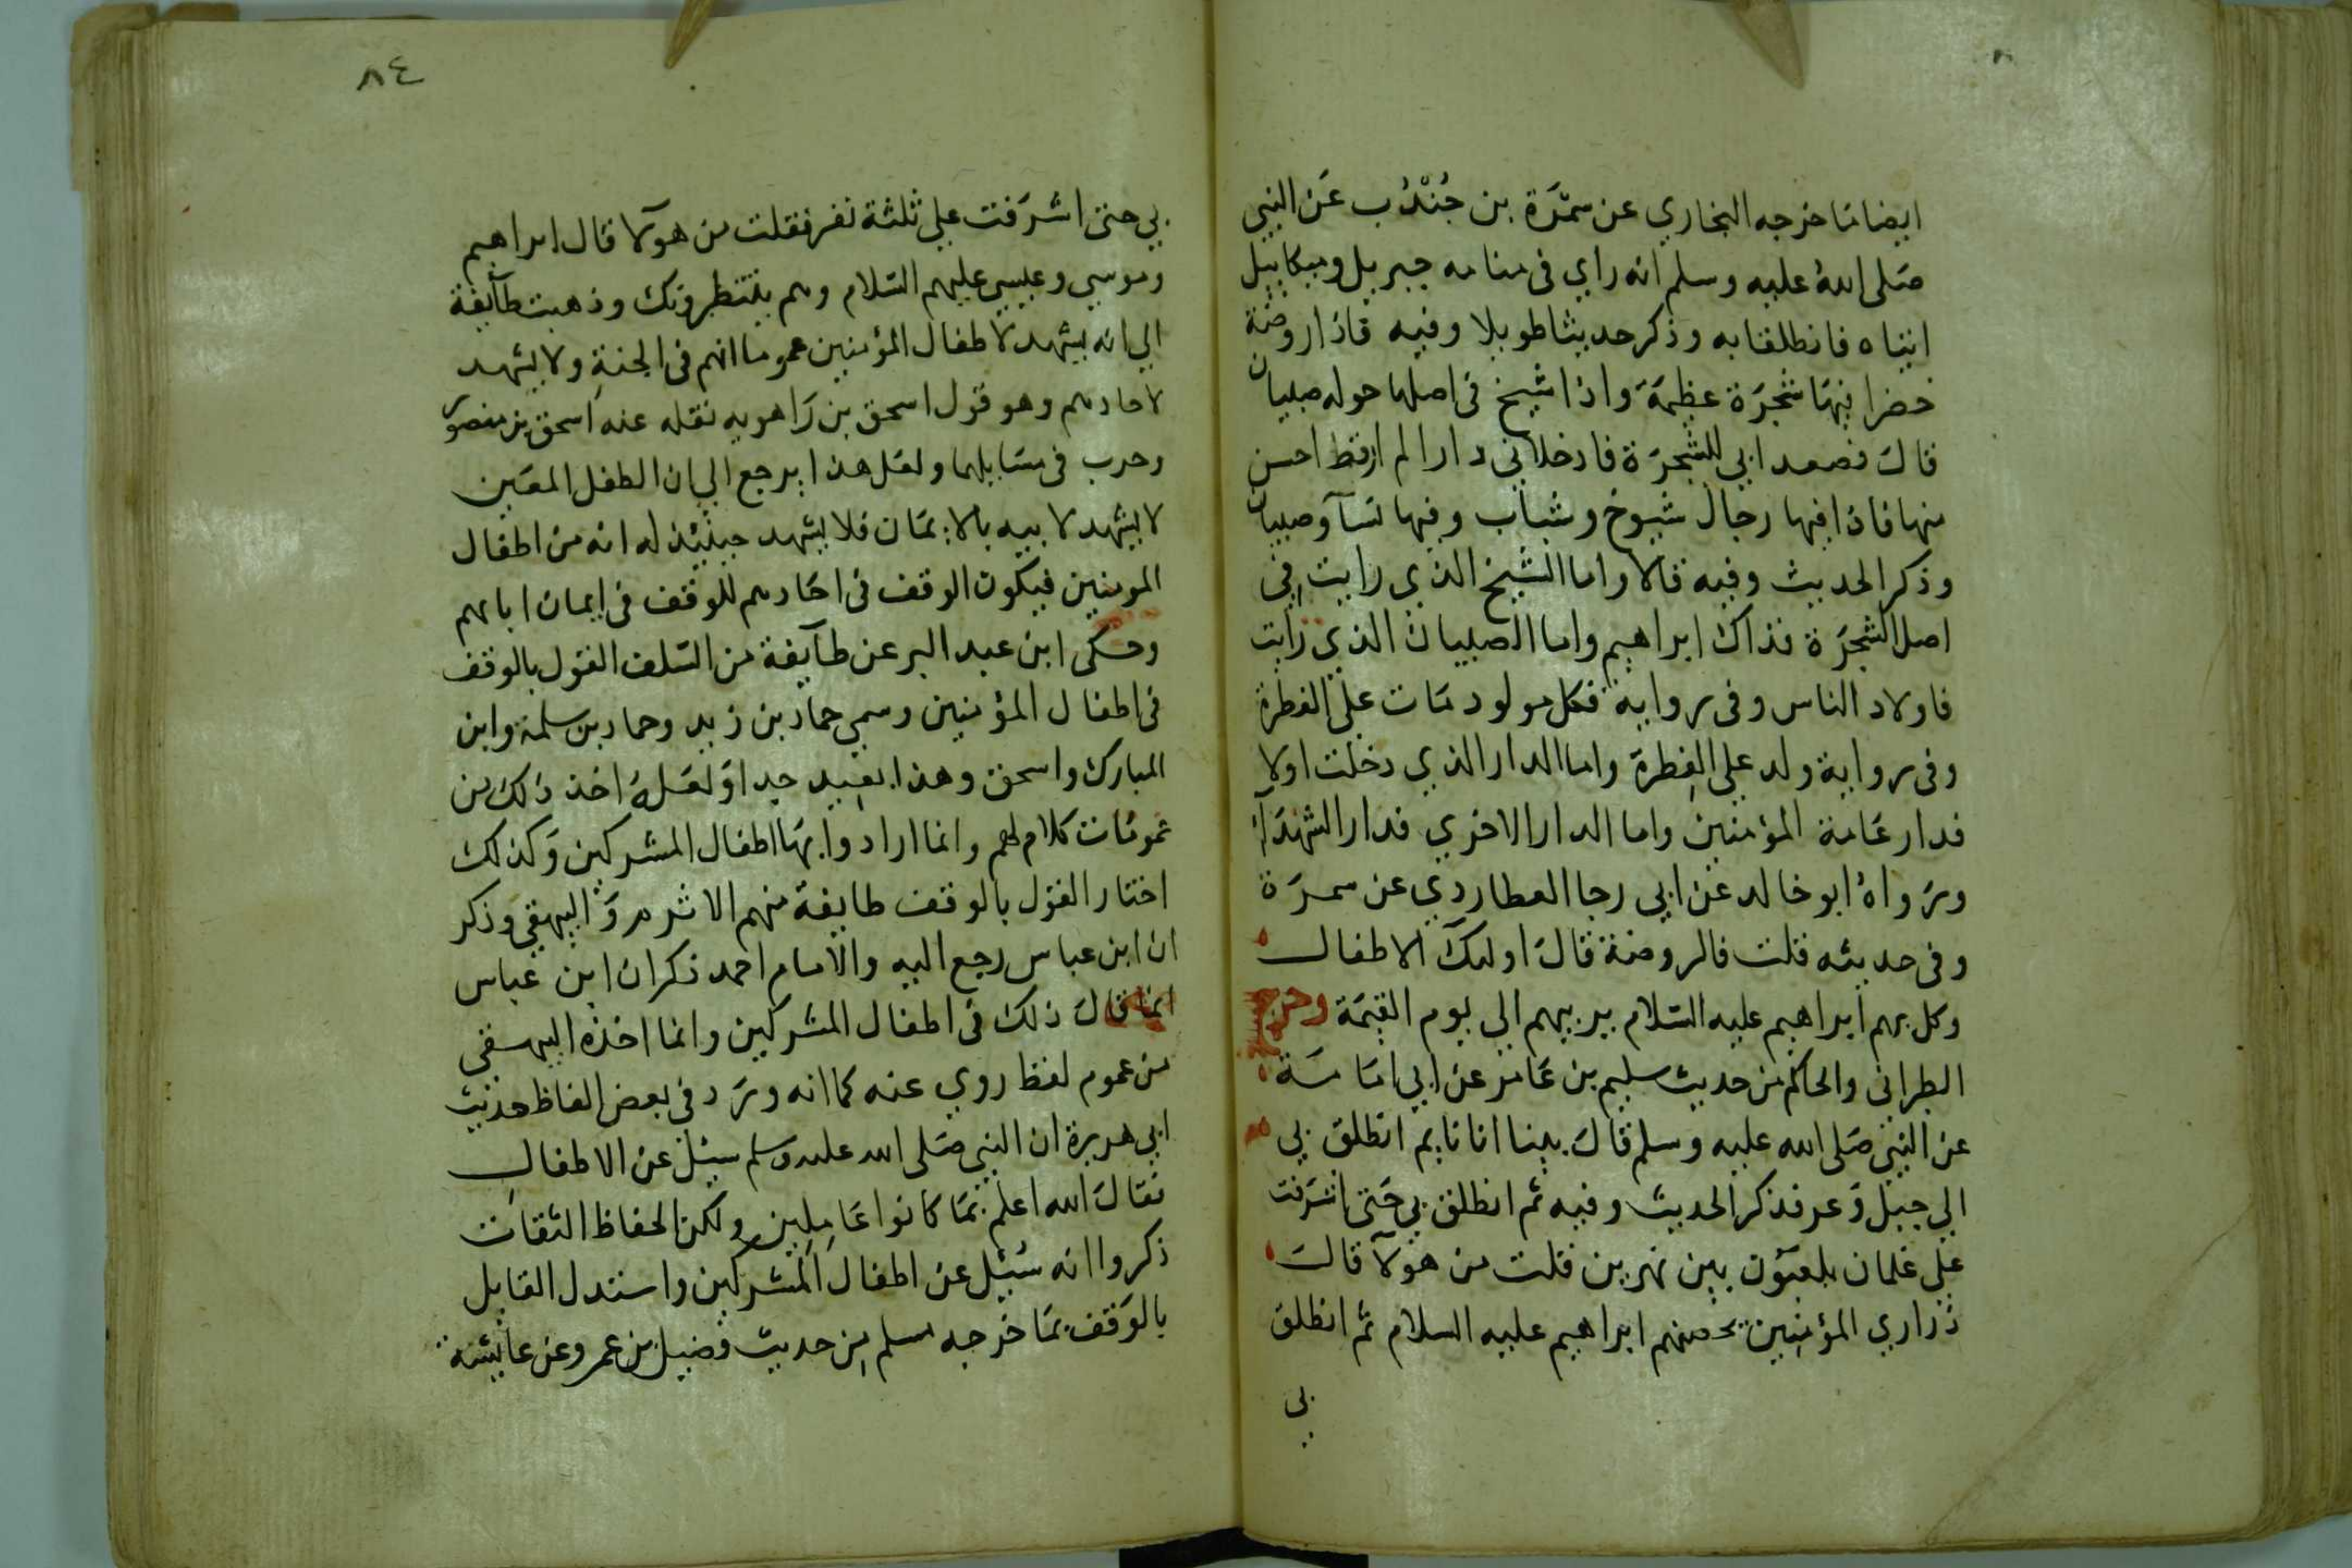 ايضا ما خرجه البخاري عن سمُرَة بن جُنْدُب عَن النبي
صَلى اللهُ عليه وسلم انه راي فى منامه جبريل وميكاييل
اتياه فانطلقا به وذكر حديثا طويلا وفيه فاذا روضة
خضرا فيهَا شجَرَة عظيمَة واذا شيخ فى اصلها حوله صبيان
قالَ فصعدا بى للشجرَة فادخلانى دارا لم ار قط احسن
منها فاذا فيها رجال شيوخ وشباب وفيها نسآ وصبيان
وذكر الحديث وفيه قالا واما الشيخ الذي رايت فى
اصل الشجرَة فذاك ابراهيم واما الصبيان الذي رايت
فاولاد الناس وفى رواية فكل مولود مَات على الفطرة
وفى رواية ولد على الفِطرة واما الدار الذي دخلت اولا
فدار عَامة المؤمنين واما الدار الاخري فدار الشهدآء
ورَواهُ ابو خالد عَن ابى رجا العطاردي عن سمرَة
وفى حديثه قلت فالروضة قالَ اوليكَ الاطفال
وكل بهم ابراهيم عليه السّلام يربيهم الى يوم القيمَة وخرج
الطبرانى والحاكم من حديث سليم بن عَامر عن ابي امَامَة
عن النبى صَلى الله عليه وسلم قالَ بينا انا نايم انطلق بي
الي جبل وَعر فذكر الحديث وفيه ثم انطلق بي حَتى اشرَفت
على غلمان يلعبَون بين نهرين قلت من هولآ قالَ
ذراري المؤمنين يحضنهم ابراهيم عليه السلام ثم انطلق
بى
٨٤
بي حتى اشرَفت على ثلثة نفر فقلت من هولآ قال ابراهيم
وموسي وعيسي عليهم السّلام وهم ينتظرونك وذهبت طآيفة
الي انه يشهد لاطفال المؤمنين عموما انهم فى الجنةِ ولا يشهد
لاحادهم وهو قول اسحق بن رَاهويه نقله عنه اسحق بن منصور
وحرب فى مسَايلهما ولعَل هذا يرجع الي ان الطفل المعَين
لا يشهد لابيه بالايمَان فلا يشهد حينئذ له انه من اطفال
المومنين فيكون الوقف فى احَادهم للوقف فى ايمان ابايهم
وحكى ابن عبد البر عن طآيفة من السّلف القول بالوقف
فى اطفال المؤمنين وسمي حماد بن زيد وحماد بن سلمة وابن
المبارك واسحق وهذا بعيد جدا وَلعَلهُ اخذ ذلك من
عمومَات كلام لهم وانما ارادوا بهَا اطفال المشركين وَكذلك
اختار القول بالوقف طايفة منهم الاثرم وَالبيهقي وذكر
ان ابن عباس رجع اليه والامام احمد ذكر ان ابن عباس
انما قالَ ذلك فى اطفال المشركين وانما اخذه البيهقى
من عموم لفظ روي عنه كما انه ورَد فى بعض الفاظ حديث
ابي هريرة ان النبي صَلى الله عليه وسلم سيئل عن الاطفال
فقالَ الله اعلم بمَا كانوا عَامِلين ولكن الحفاظ الثقات
ذكروا انه سُيئل عن اطفال المشركين واستدل القايل
بالوَقف بمَا خرجه مسلم مِن حديث فضيل بن عمرو عن عايشة